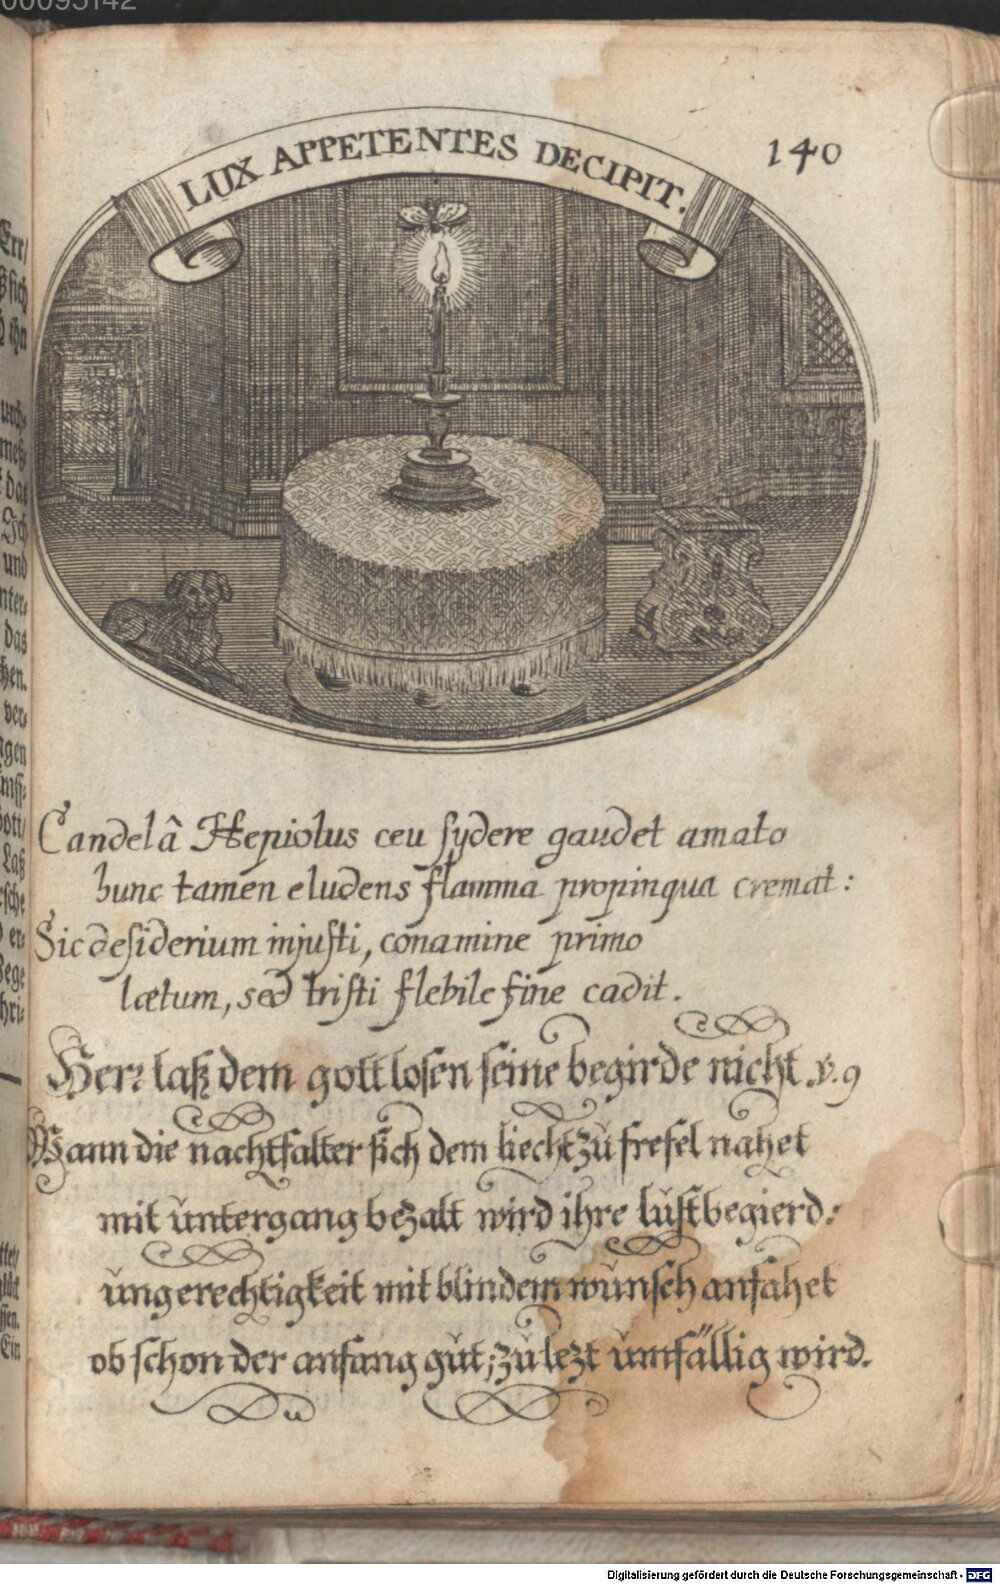 00095142
LUX APPETENTES DECIPIT.
140
Candelâ Hepiolus ceu ſydere gaudet amato
hunc tamen eludens flamma propinqua cremat:
Sic deſiderium injuſti, conamine primo
lætum, sed triſti flebile fine cadit.
Herr laß dem gottloſen ſeine begirde nicht. v. 9
Wann die nachtfalter ſich dem liecht zu frefel nahet
mit untergang bezalt wird ihre luſtbegierd:
ungerechtigkeit mit blindem wunſch anfahet
ob ſchon der anfang gut; zu lezt umfällig wird.
Err/
ßſich
urch⸗
das
Ich
und
nter⸗
das
hen.
ver⸗
gen
Gott/
Laß
er⸗
Wege
hri⸗
ſſen.
Ein
Digitalisierung gefördert durch die Deutsche Forschungsgemeinschaft - DFG